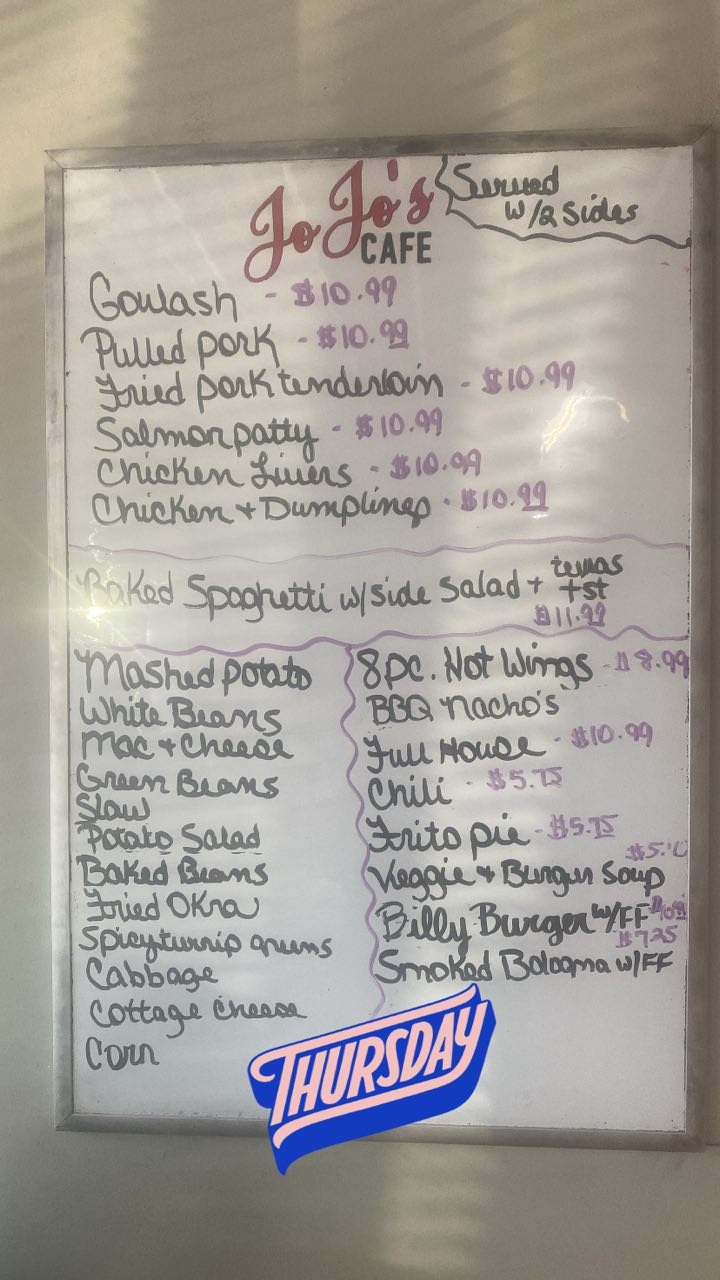 JoJo's
CAFE
Served
w/2 Sides
Goulash - $10.99
Pulled pork - $10.99
Fried pork tenderloin - $10.99
Salmon patty - $10.99
Chicken Livers - $10.99
Chicken + Dumplings - $10.99
Baked Spaghetti w/side Salad + texas
tst
$11.99
Mashed potato
White Beans
Mac + Cheese
Green Beans
Slaw
Potato Salad
Baked Beans
Fried Okra
Spicy turnip greens
Cabbage
Cottage Cheese
Corn
8pc. Hot Wings - $8.99
BBQ Nacho's
Full House - $10.99
Chili - $5.75
Frito pie - $5.75
Veggie + Burger Soup
Billy Burger w/FF
$7.25
Smoked Bologna w/FF
THURSDAY